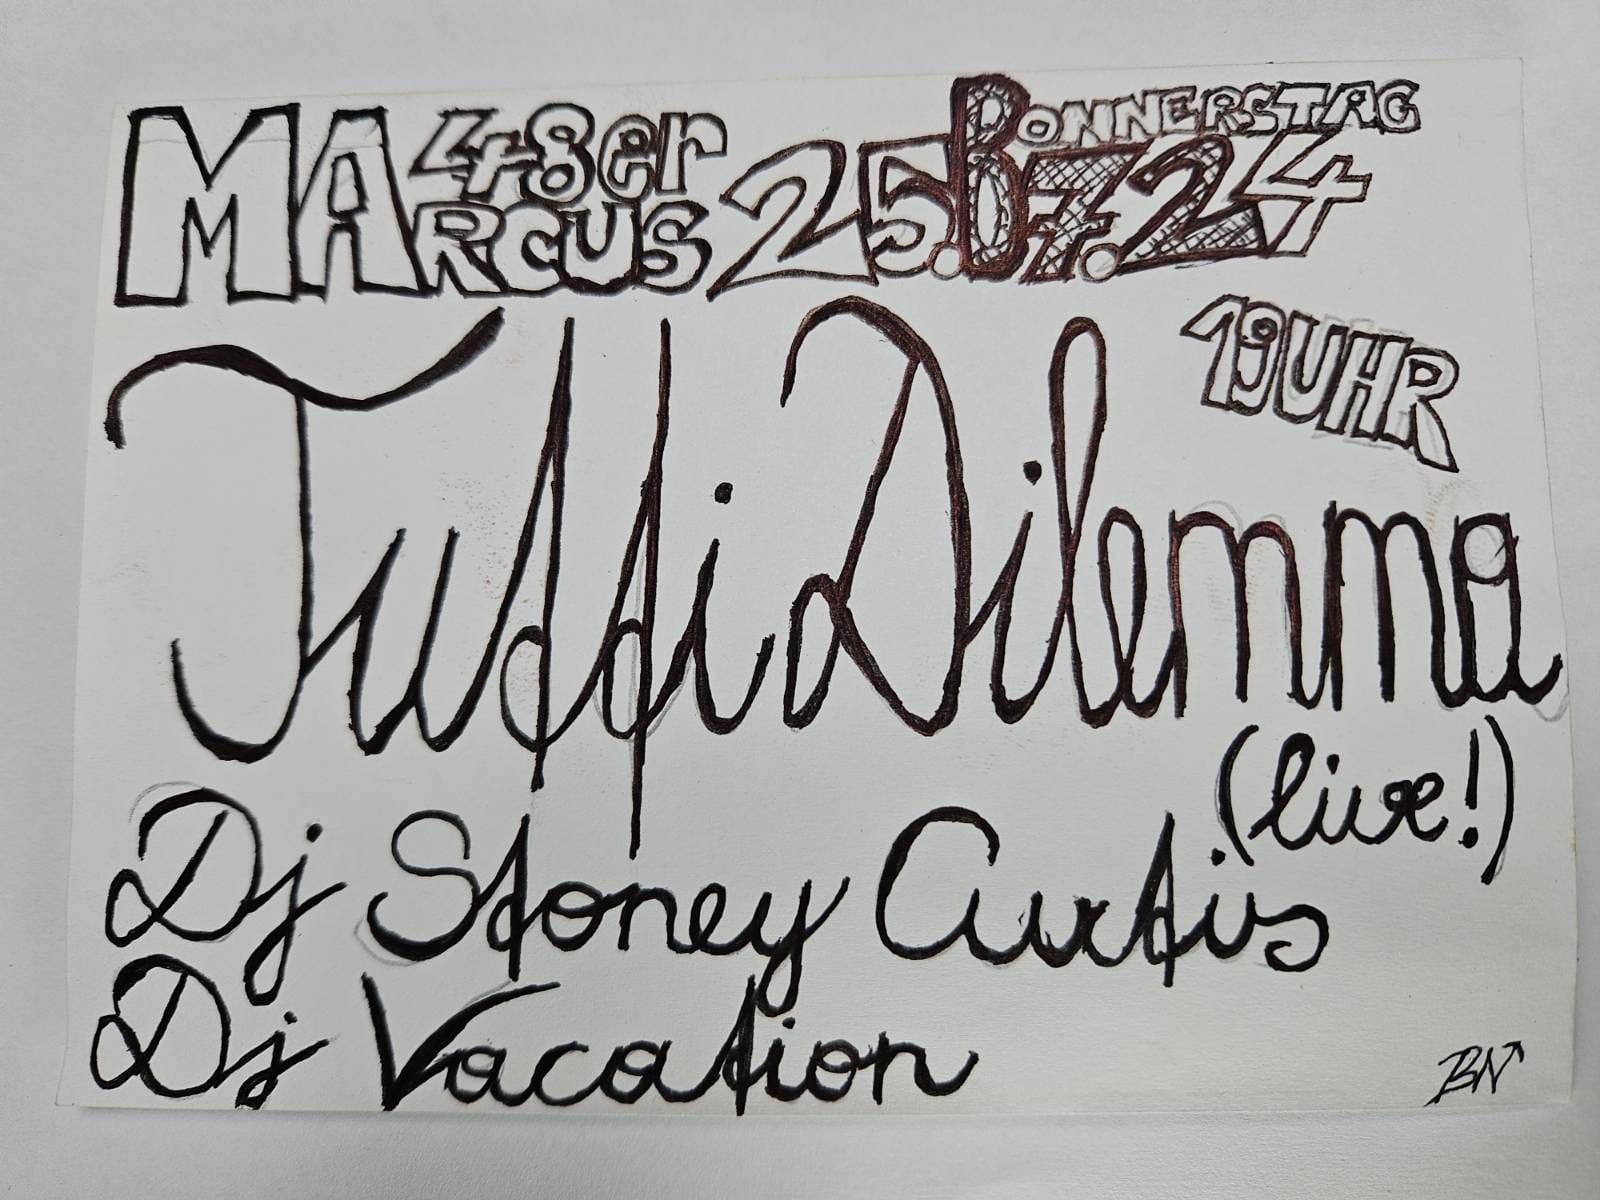 48er DONNERSTAG
MARCUS 25.07.24
19 UHR
Tuffi Dilemma
(live!)
Dj Stoney Curtis
Dj Vacation
BN